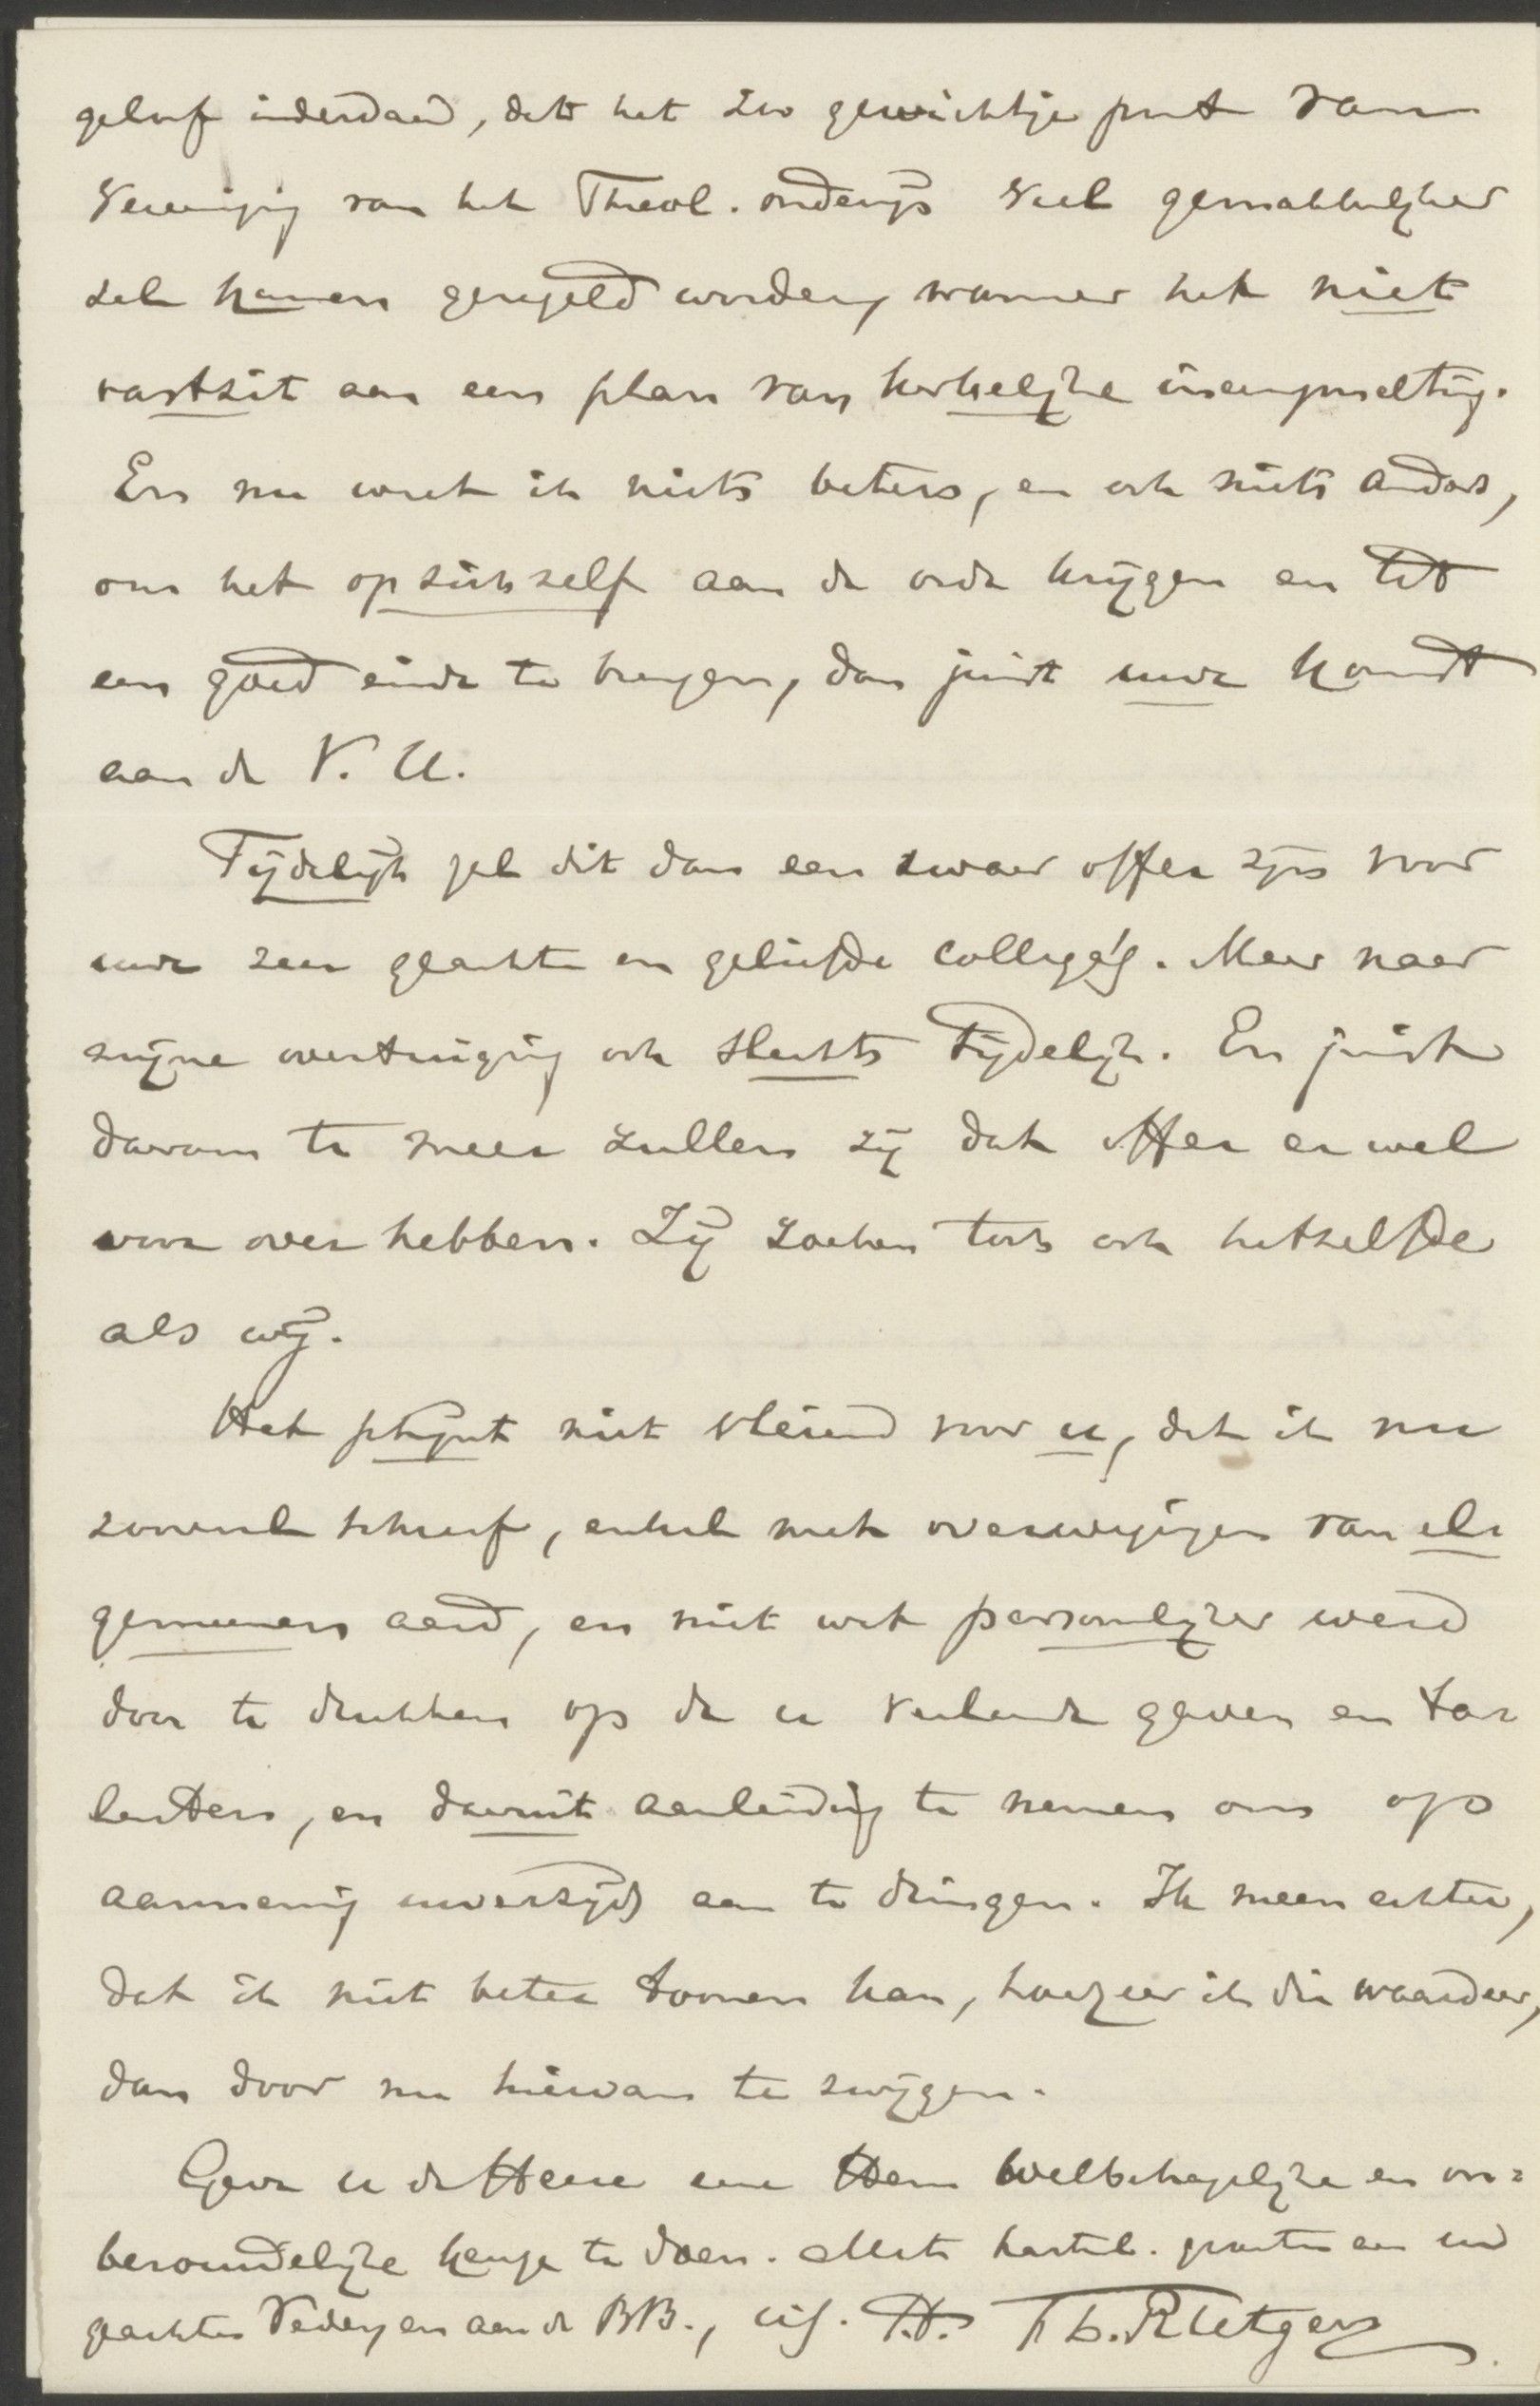 geloof inderdaad, dat het zoo gewichtige punt van
Vereeniging van het Theol. onderwijs veel gemakkelijker
zal kunnen geregeld worden, wanneer het niet
vastzit aan een plan van kerkelijke ineensmelting.
En nu weet ik niets beters, en ook niets anders,
om het op zich zelf aan de orde krijgen en tot
een goed einde te brengen, dan juist uwe komst
aan de V. U.
Tijdelijk zal dit dan een zwaar offer zijn voor
uwe zeer geachte en geliefde collega's. Maar naar
mijne overtuiging ook slechts tijdelijk. En juist
daarom te meer zullen zij dat offer er wel
voor over hebben. Zij zoeken toch ook hetzelfde
als wij.
Het schijnt niet vleiend voor u, dat ik nu
zooveel schreef, enkel met overwegingen van al=
gemeenen aard, en niet wat persoonlijker werd
door te drukken op de u verleende gaven en ta=
lenten, en daaruit aanleiding te nemen om op
aanneming uwerzijds aan te dringen. Ik meen echter,
dat ik niet beter toonen kan, hoezeer ik die waardeer,
dan door nu hiervan te zwijgen.
Geve u de Heere eene Hem welbehagelijke en on=
berouwelijke keuze te doen. Met hartel. groeten aan uw
geachten Vader en aan de BB., uw. F. L. Rutgers